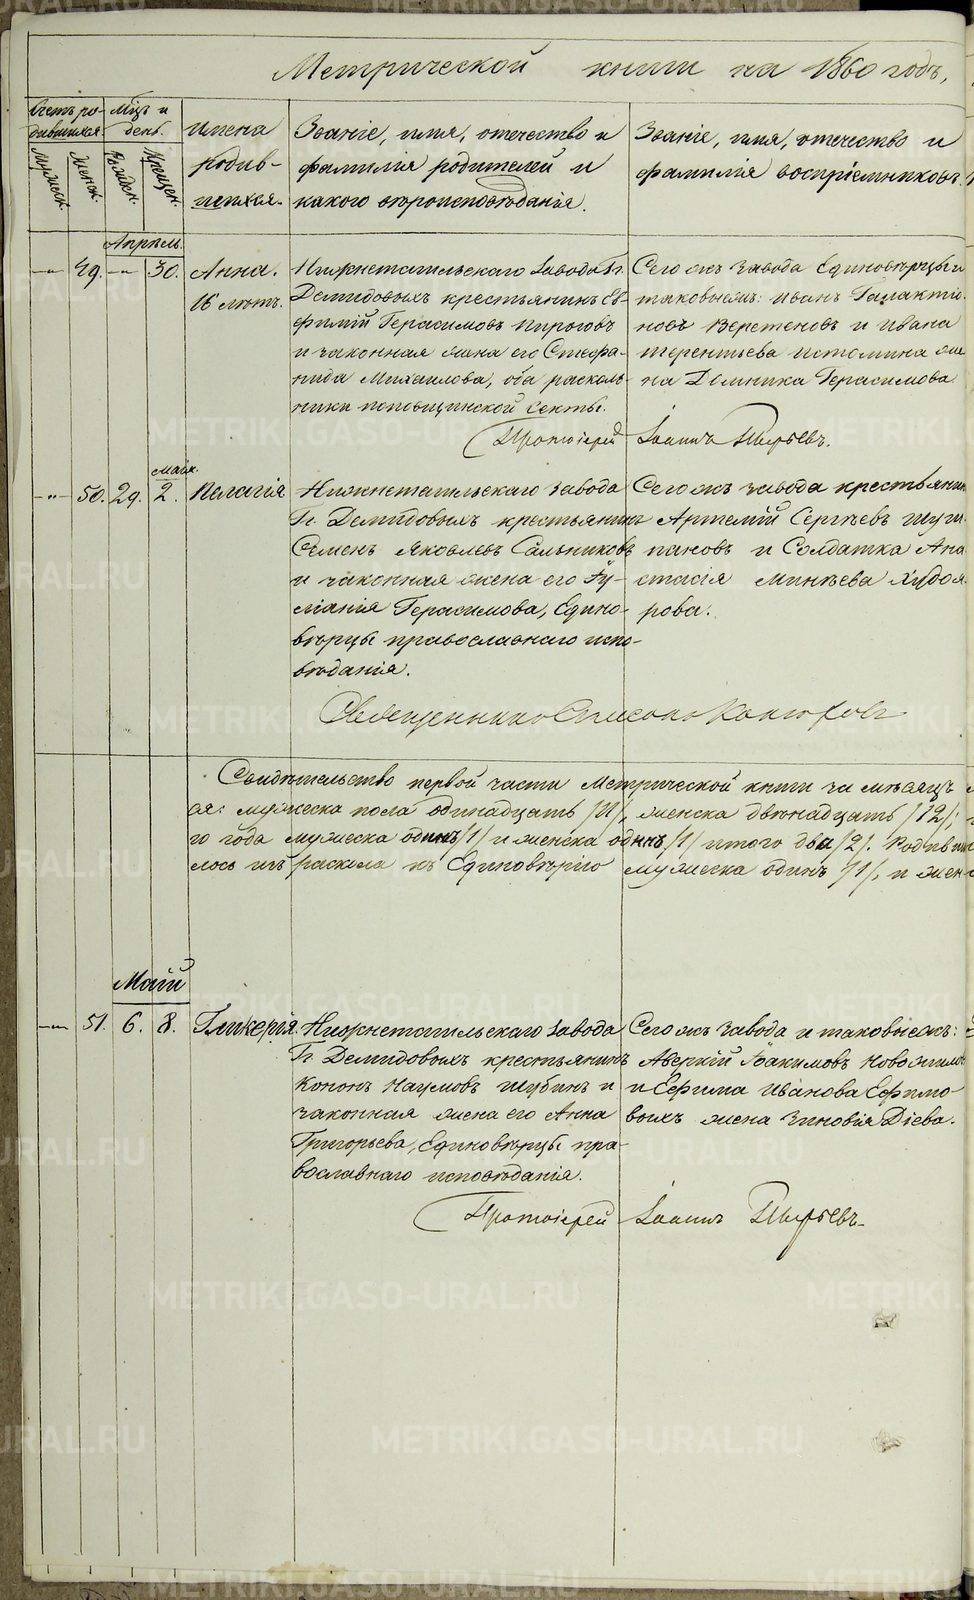 Метрической книги на 1860 годъ,
Счетъ ро-
дившихся.
Мужеск.
Женск.
Мцъ и
день.
Рожден.
Крещен.
Имена
родив-
шихся.
Званіе, имя, отечество и
фамилія родителей и
какого вѣроисповѣданія.
Званіе, имя, отечество и
фамилія воспріемниковъ.
Апрѣль.
-"- 49. -"- 30. Анна.
16 лѣтъ.
Нижнетагильскаго завода Гг.
Демидовыхъ крестьянинъ Ев-
фимій Герасимовъ Пироговъ
и законная жена его Стефа-
нида Михаилова, оба расколь-
ники поповщинской секты.
Сего жъ завода Единовѣрцы и
таковыежъ: Иванъ Галактіо-
новъ Веретеновъ и Ивана
Терентьева Истомина же-
на Домника Герасимова
Протоіерей Іоаннъ Пырьевъ.
Майя.
-"- 50. 29. 2. Пелагія
Нижнетагильскаго завода
Гг. Демидовыхъ крестьянинъ
Семенъ Яковлевъ Сальниковъ
и законная жена его Іу-
ліанія Герасимова, Едино-
вѣрцы православнаго испо-
вѣданія.
Сего жъ завода крестьянинъ
Артемій Сергѣевъ
пановъ и Солдатка Ана
стасія Минѣева Худоя
рова.
Священникъ Симеонъ Конюховъ
Свидѣтельство первой части Метрической книги за мѣсяцъ
ая: мужеска пола одинадцать /11/, женска двѣнадцать /12/;
го года мужеска одинъ /1/ и женска одинъ /1/ итого два /2/. Родив
лось изъ раскола къ Единовѣрію мужеска одинъ /1/, и жен
Май
-"- 51. 6. 8. Гликерія.
Нижнетагильскаго завода
Гг. Демидовыхъ крестьянинъ
Кононъ Наумовъ Шубинъ и
законная жена его Анна
Григорьева, Единовѣрцы пра-
вославнаго исповѣданія.
Сего жъ завода и таковыежъ:
Аверкій Іоакимовъ
и Ефима Иванова Ефимо-
выхъ жена Зиновія Діева.
Протоіерей Іоаннъ Пырьевъ
METRIKI.GASO-URAL.RU